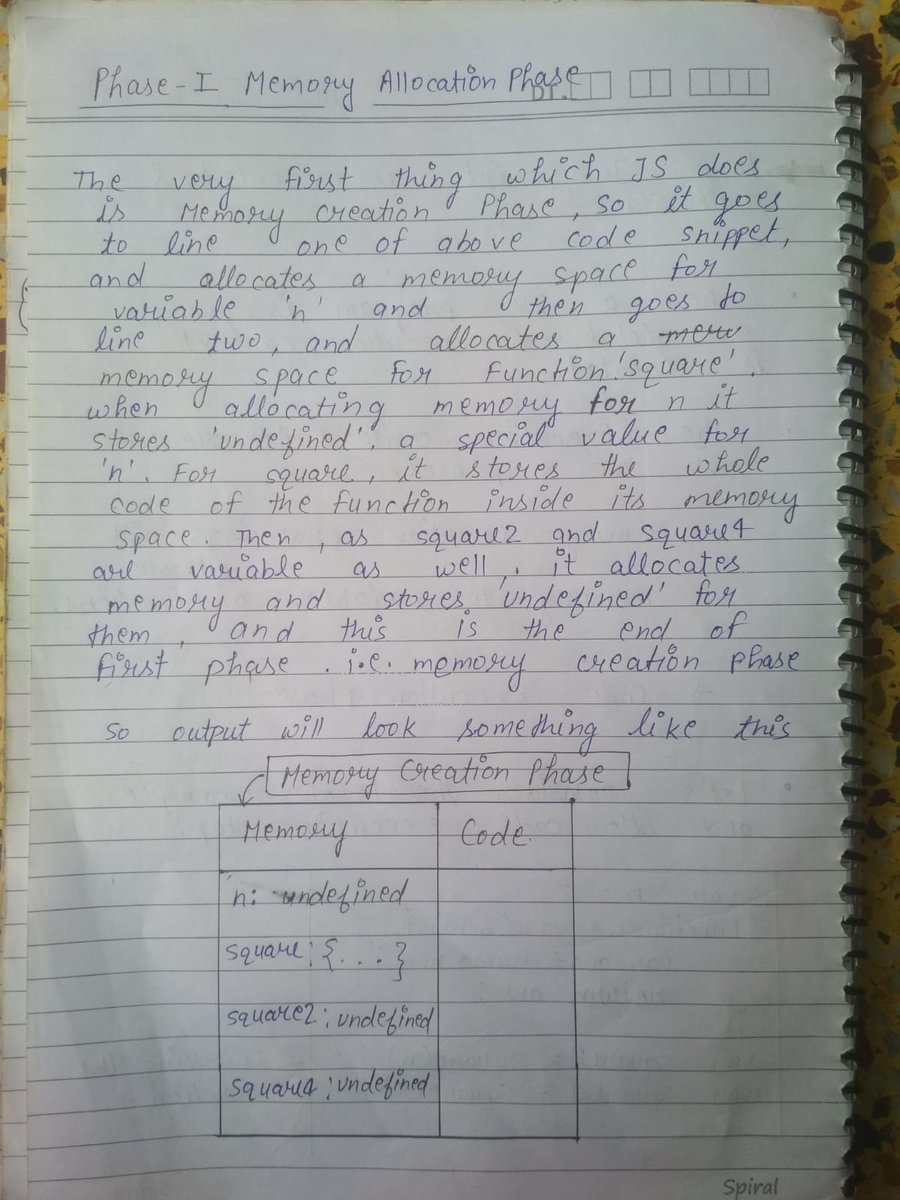 Phase-I Memory Allocation Phase
The very first thing which JS does
is Memory creation Phase, so it goes
to line one of above code snippet,
and allocates a memory space for
variable 'n' and, then goes to
line two, and allocates a
memory space for function 'square'.
when allocating memory for n it
stores 'undefined'. a special value for
'n'. For square, it stores the whole
code of the function inside its memory
space. Then, as square2 and square4
are variable as well, it allocates
memory and stores 'undefined' for
them, and this is the end of
first phase. i.e. memory creation phase
so output will look something like this
Memory Creation Phase
Memory Code.
n: undefined
square: {...}
square2: undefined
square4: undefined
Spiral